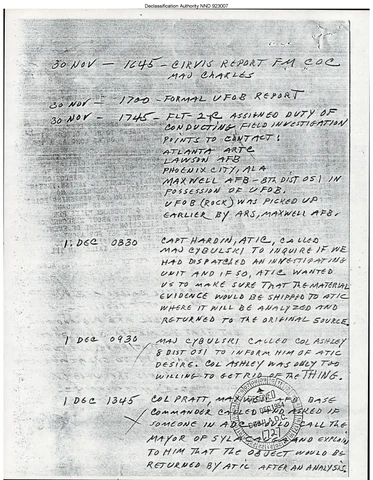 Declassification Authority NND 923007
30 NOV — 1645 - CIRVIS REPORT FM COC
MAJ CHARLES
30 NOV — 1700 - FORMAL UFOB REPORT
30 NOV — 1745 - FLT 2-C ASSIGNED DUTY OF
CONDUCTING FIELD INVESTIGATION
POINTS TO CONTACT:
ATLANTA ARTC
LAWSON AFB
PHOENIX CITY, ALA
MAXWELL AFB - 8TH DIST OSI IN
POSSESSION OF UFOB.
UFOB (ROCK) WAS PICKED UP
EARLIER BY ARS, MAXWELL AFB.
1 DEC 0830 CAPT HARDIN, ATIC, CALLED
MAJ CYBULSKI TO INQUIRE IF WE
HAD DISPATCHED AN INVESTIGATING
UNIT AND IF SO, ATIC WANTED
US TO MAKE SURE THAT THE MATERIAL
EVIDENCE WOULD BE SHIPPED TO ATIC
WHERE IT WILL BE ANALYZED AND
RETURNED TO THE ORIGINAL SOURCE.
1 DEC 0930 MAJ CYBULSKI CALLED COL ASHLEY
8 DIST OSI TO INFORM HIM OF ATIC
DESIRE. COL ASHLEY WAS ONLY TOO
WILLING TO GET RID OF THE THING.
1 DEC 1345 COL PRATT, MAXWELL AFB BASE
COMMANDER CALLED AND ASKED IF
SOMEONE IN ADC WOULD CALL THE
MAYOR OF AND EXPLAIN
TO HIM THAT THE OBJECT WOULD BE
RETURNED BY ATIC AFTER AN ANALYSIS.